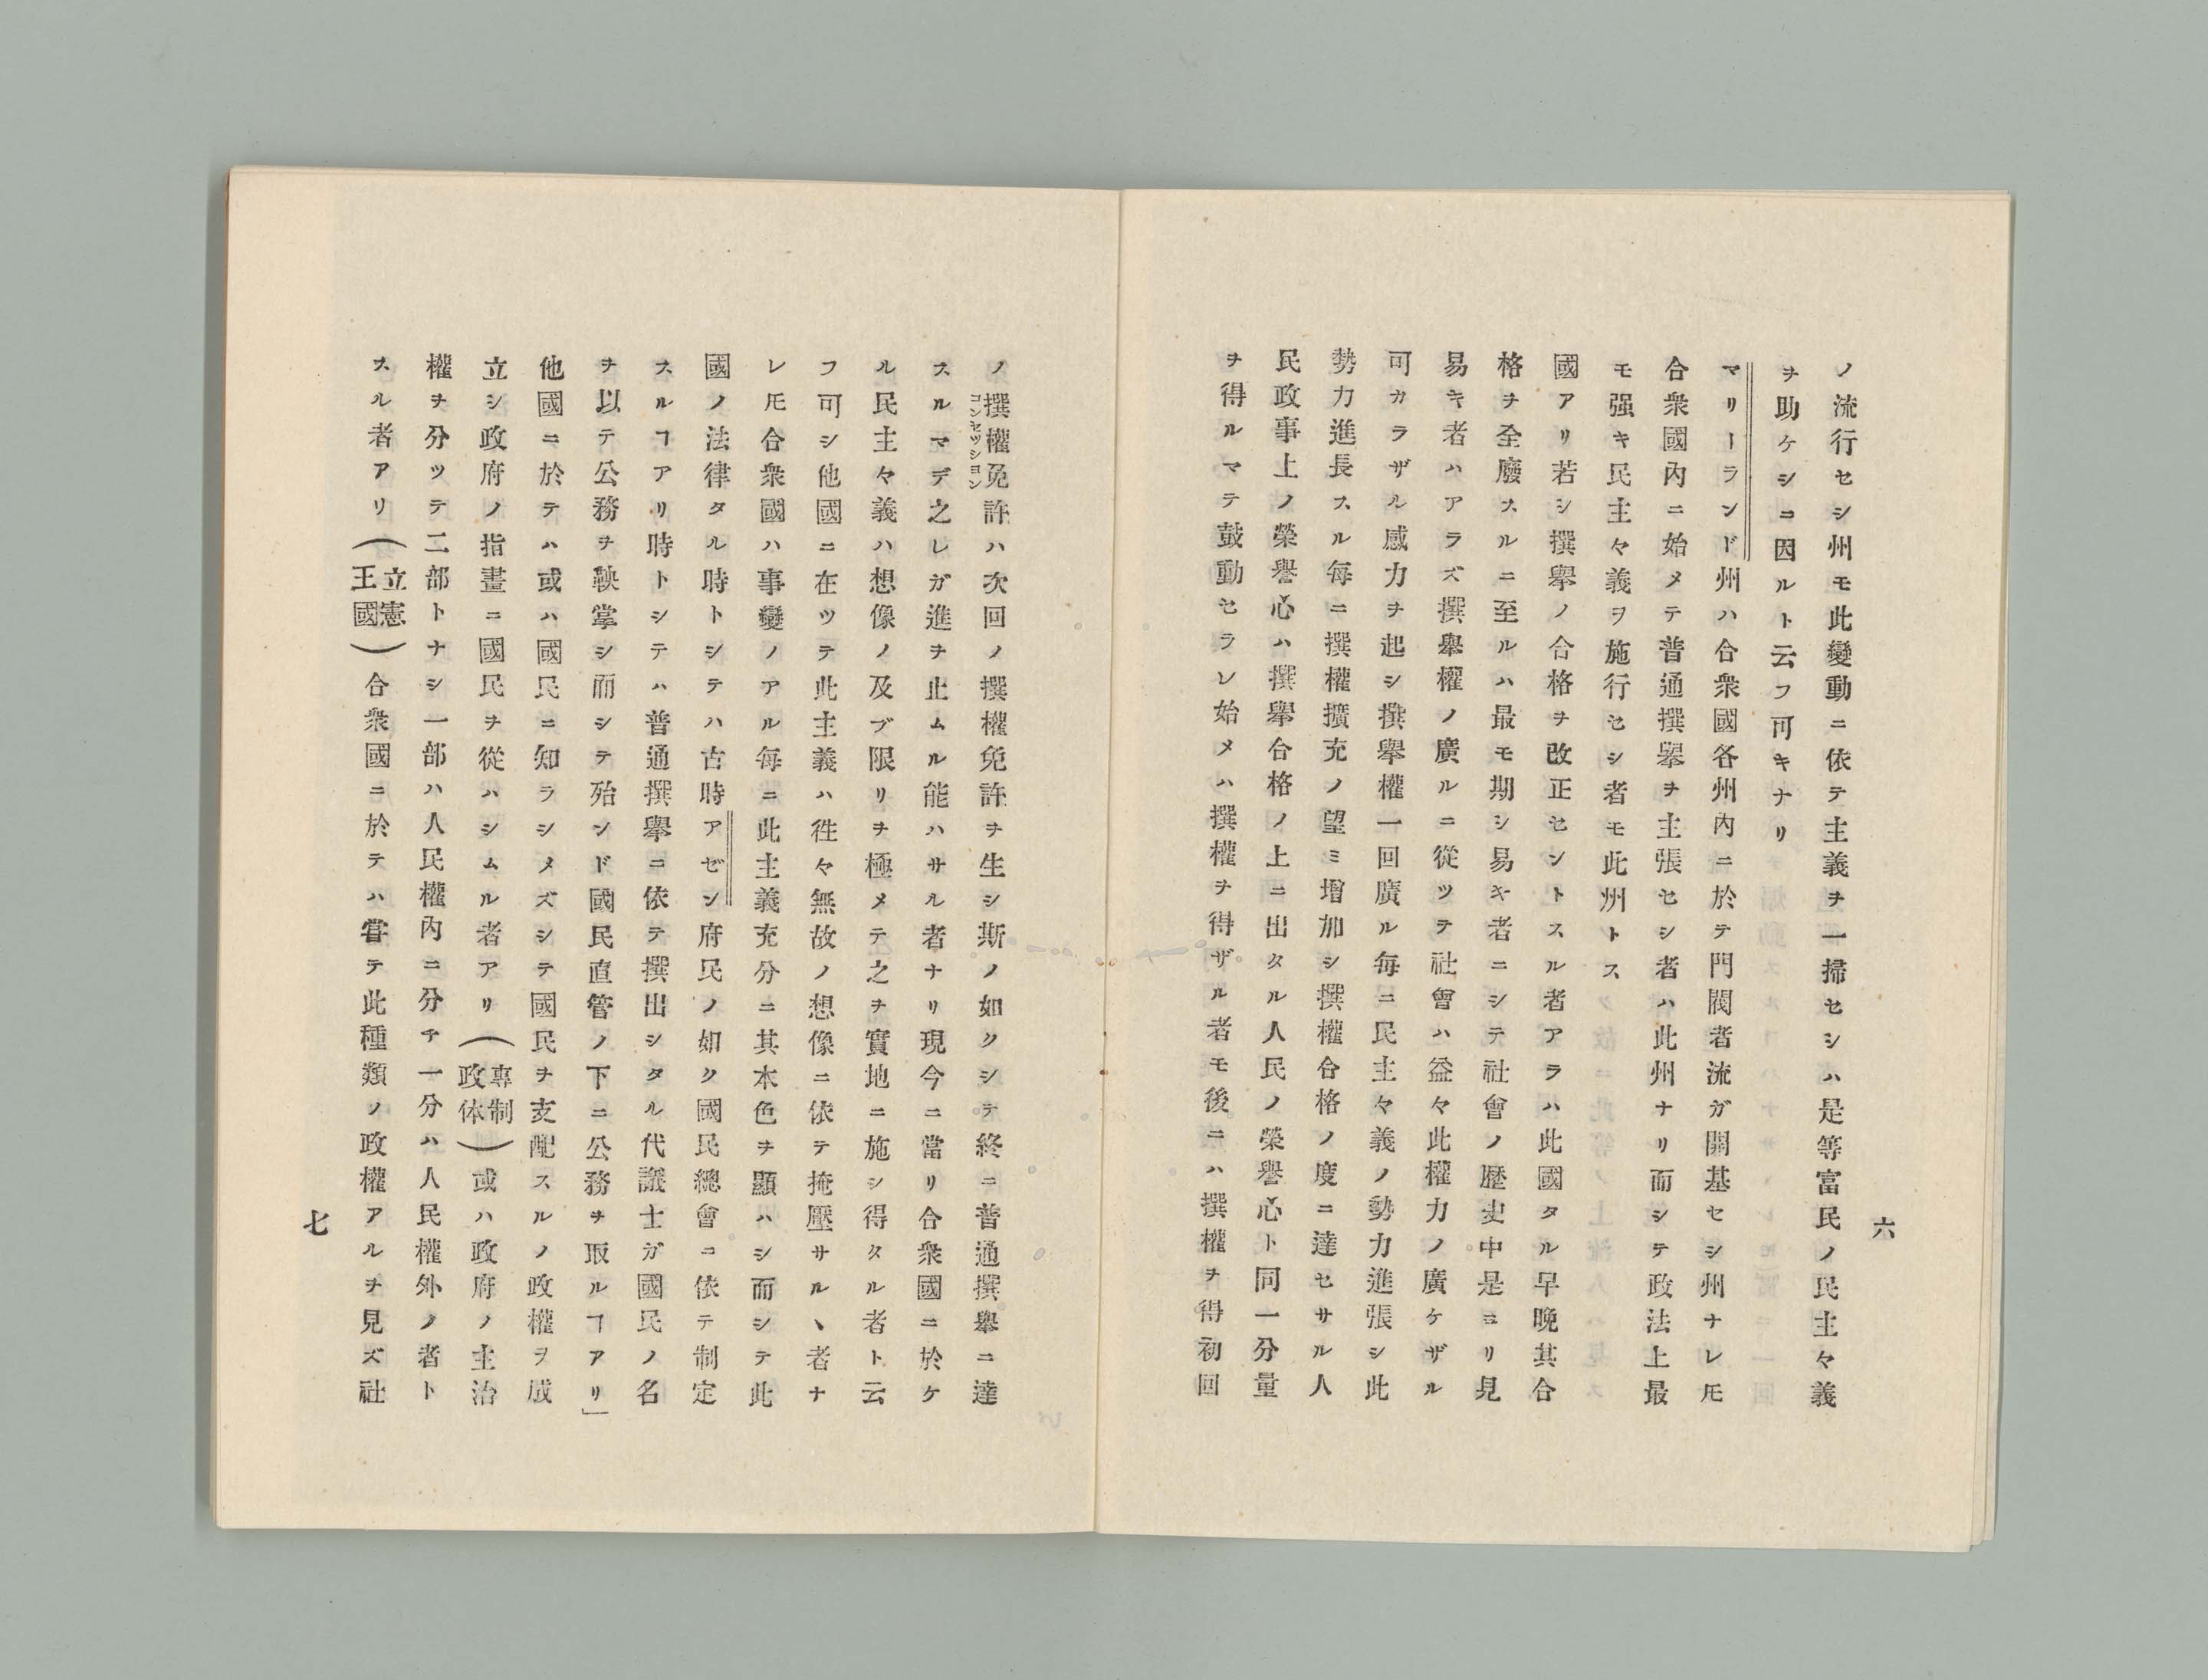 六
ノ流行セシ州モ此變動ニ依テ主義ヲ一掃セシハ是等富民ノ民主々義
ヲ助ケシニ因ルト云フ可キナリ
マリーランド州ハ合衆國各州內ニ於テ門閥者流ガ開基セシ州ナレ𪜈
合衆國內ニ始メテ普通撰擧ヲ主張セシ者ハ此州ナリ而シテ政法上最
モ强キ民主々義ヲ施行セシ者モ此州トス
國アリ若シ撰擧ノ合格ヲ改正セントスル者アラハ此國タル早晚其合
格ヲ全廢スルニ至ルハ最モ期シ易キ者ニシテ社會ノ歷史中是ヨリ見
易キ者ハアラズ撰擧權ノ廣ルニ從ツテ社會ハ益々此權力ノ廣ケザル
可カラザル感力ヲ起シ撰擧權一回廣ル每ニ民主々義ノ勢力進張シ此
勢力進長スル每ニ撰權擴充ノ望ミ增加シ撰權合格ノ度ニ達セサル人
民政事上ノ榮譽心ハ撰擧合格ノ上ニ出タル人民ノ榮譽心ト同一分量
ヲ得ルマテ鼓動セラレ始メハ撰權ヲ得ザル者モ後ニハ撰權ヲ得初回
ノ撰權免許ハ次回ノ撰權免許ヲ生シ斯ノ如クシテ終ニ普通撰擧ニ達
コンセッション
スルマデ之レガ進ヲ止ムル能ハサル者ナリ現今ニ當リ合衆國ニ於ケ
ル民主々義ハ想像ノ及ブ限リヲ極メテ之ヲ實地ニ施シ得タル者ト云
フ可シ他國ニ在ツテ此主義ハ徃々無故ノ想像ニ依テ掩壓サルヽ者ナ
レ𪜈合衆國ハ事變ノアル每ニ此主義充分ニ其本色ヲ顯ハシ而シテ此
國ノ法律タル時トシテハ古時アゼン府民ノ如ク國民總會ニ依テ制定
スルヿアリ時トシテハ普通撰擧ニ依テ撰出シタル代議士ガ國民ノ名
ヲ以テ公務ヲ鞅掌シ而シテ殆ンド國民直管ノ下ニ公務ヲ取ルヿアリ」
他國ニ於テハ或ハ國民ニ知ラシメズシテ國民ヲ支配スルノ政權ヲ成
立シ政府ノ指畫ニ國民ヲ從ハシムル者アリ（專制政体）或ハ政府ノ主治
權ヲ分ツテ二部トナシ一部ハ人民權內ニ分チ一分ハ人民權外ノ者ト
スル者アリ（立憲王國）合衆國ニ於テハ嘗テ此種類ノ政權アルヲ見ズ社
七